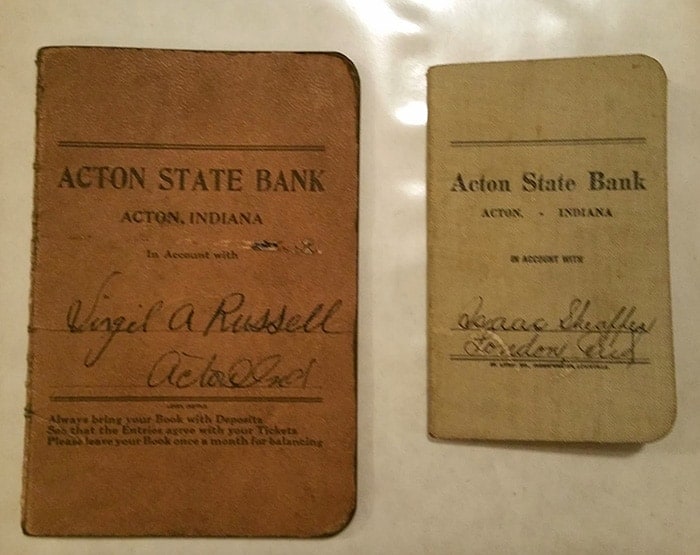 ACTON STATE BANK
ACTON, INDIANA
In Account with
Virgil A Russell
Acton Ind
Always bring your Book with Deposits
See that the Entries agree with your Tickets
Please leave your Book once a month for balancing
Acton State Bank
ACTON, - INDIANA
IN ACCOUNT WITH
Isaac Sheaffer
London, Ind